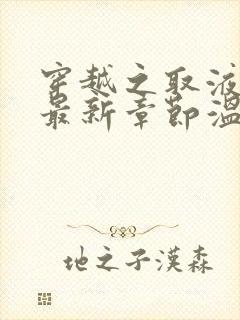 穿越之取液
最新章节温
地之子漠森